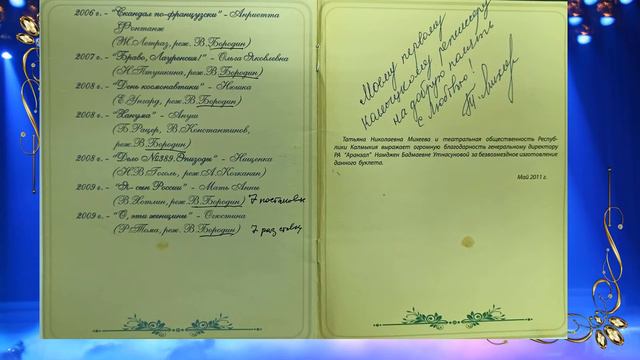 2006 г. - "Скандал по-французски" - Анриетта
Фонтанж
(Ж.Летраз, реж. В.Бородин)
2007 г. - "Браво, Лауренсия!" - Ольга Яковлевна
(Н.Птушкина, реж.В.Бородин)
2008 г. - "День космонавтики" - Нюшка
(Е.Унгард, реж.В.Бородин)
2008 г. - "Ханума" - Ануш
(Б.Рацер, В.Константинов,
реж.В.Бородин)
2008 г. - "Дело №389.Эпизоды" - Кищенка
(Н.В.Гоголь, реж.А.Колканан)
2009 г. - "Я- сын России" - Мать Анны
(В.Хотлин, реж.В.Бородин) 7 постановок
2009 г. - "О, эти женщины" - Огюстина
(Р.Тома, реж. В.Бородин) 7 раз ставил
Моему первому
калмыцкому режиссеру
на добрую память
с любовью!
Т. Михеева
Татьяна Николаевна Михеева и театральная общественность Респуб-
лики Калмыкия выражает огромную благодарность генеральному директору
РА "Аранзал" Намджян Бадмаевне Утнасуновой за безвозмездное изготовление
данного буклета.
Май 2011 г.